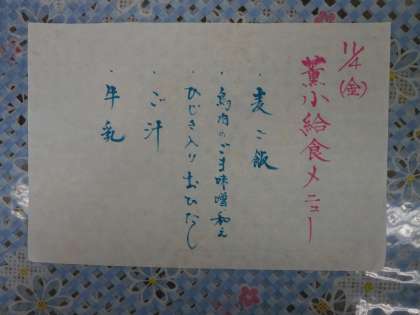 11/4(金)
薫小給食メニュー
・麦ご飯
・鳥肉のごま味噌和え
・ひじき入りおひたし
・ご汁
・牛乳